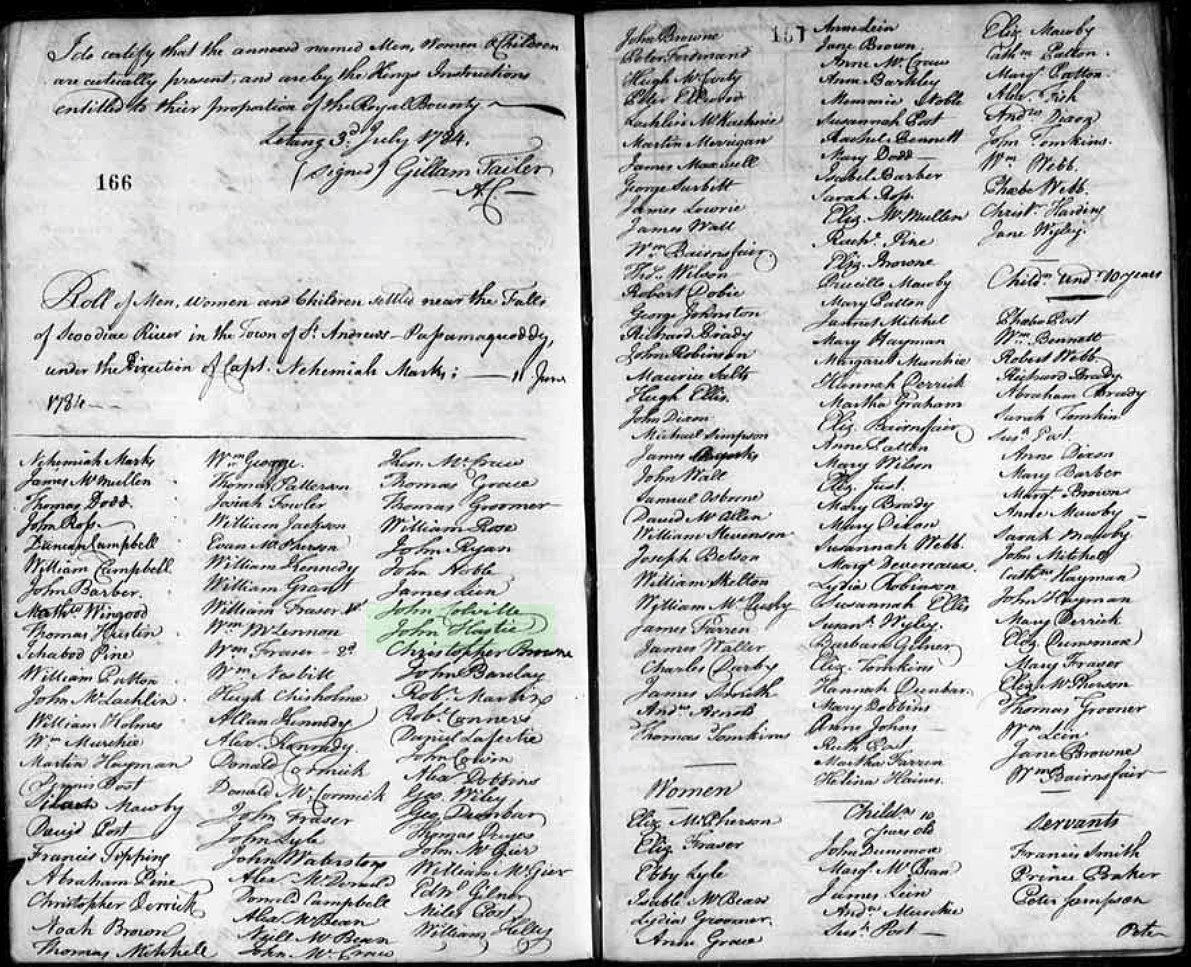 I do certify that the annexed named Men, Women & Children
are actually present, and are by the Kings Instructions
entitled to their proportion of the Royal Bounty
Letang 3d. July 1784.
(Signed) Gillam Tailer
A.C.
166
Roll of Men, Women and Children settled near the Falls
of Scoodiac River in the Town of St Andrews - Passamaquoddy,
under the Direction of Capt. Nehemiah Marks; 11 June
1784
Nehemiah Marks
James McMullen
Thomas Dodd.
John Ross.
Duncan Campbell
William Campbell
John Barber.
Mathw Wingood
Thomas Hustin
Ichabod Pine
William Patton
John McLachlin
William Holmes
Wm Murchie
Martin Hayman
Post
Mawby
David Post
Francis Topping
Abraham Pine
Christopher Derrick
Noah Brown
Thomas Mitchell
Wm George.
Thomas Patterson
Josiah Fowler
William Jackson
Evan McPherson
William Kennedy
William Grant
William Fraser
Wm McLennon
Wm Fraser - 2d.
Wm Nesbitt
Hugh Chisholme
Allan Kennedy
Alex. Kennedy
Donald Cormick
Donald McCormick
John Fraser
John Lyle
John Waterston
Alex. McDonald
Donald Campbell
Alex McBean
Neill McBean
John McCraw
McCraw
Thomas Groves
Thomas Groomer
William Rose
John Ryan
John Noble
James Lein
John Colville
John Hastie
Christopher Browne
John Barclay
Robt. Martin
Robt. Conners
Daniel Lafertie
John Colvin
Alex Dobbins
Geo. Wiley
Geo. Dunbar
Thomas
John McGier
William McGier
Edwd. Gilner
Miles Post
William Kelly
John Browne
Peter Ferdinand
Hugh McCurty
Peter Ellwood
Lachlin McKachnie
Martin Merigan
James Maxwell
George Surbitt
James Lowrie
James Wall
Wm Bairnsfair
Thos. Wilson
Robert Dobie
George Johnston
Richard Brady
John Robinson
Maurice Salts
Hugh Ellis.
John Dixon
Michael Simpson
James
John Wall
Samuel Osborne
David McAllen
William Stevenson
Joseph Betson
William Skelton
William McClusky
James Farren
James Waller
Charles Darby
James Smith
Andw Arnold
Thomas Tomkins
Women
Eliz. McPherson
Eliz. Fraser
Ebby Lyle
Isable McBean
Lydia Groomer.
Anne Grove
157
Anne Lein
Jane Brown.
Anne McCraw
Anna Barkley
Mommie Noble
Susannah Post
Rachel Bennett
Mary Dodd
Isabel Barber
Sarah Ross.
Eliz. McMullen
Rachl. Pine
Eliz. Browne
Priscilla Mawby
Mary Patton
Jannet Mitchel
Mary Hayman
Margaret Murchie
Hannah Derrick
Martha Graham
Eliz. Bairnsfair
Anne Patton
Mary Wilson
Eliz. Just.
Mary Brady
Mary Dixon
Susannah Webb.
Margt Devereaux.
Lydia Robinson
Susannah Ellis
Susant. Wigley.
Barbara Gilner
Eliz. Tomkins
Hannah Dunbar.
Mary Dobbins
Anne Johns
Ruth Post
Martha Farren
Helena Haines.
Childn. 10
Years old
John Dunsmore
Margt. McBean
James Lein
Andw Murchie
Susn. Post
Eliz. Mawby
Cathn Patton.
Margt Patton.
Alex. Fish
Andw Dixon
John Tomkins.
Wm Webb.
Phœbe Webb.
Christr. Harding
Jane Wigley.
Childn. Undr. 10 years
Phœbe Post
Wm. Bennett
Robert Webb
Richard Brady
Abraham Brady
Sarah Tomkin
Susn. Post.
Anne Dixon
Mary Barber
Margt Brown
Anne Mawby
Sarah Mawby
John Mitchell
Cathn Hayman
John Hayman
Mary Derrick
Eliz. Dunsmore
Mary Fraser
Eliz. McPherson
Thomas Groomer
Wm Lein
Jane Browne
Wm Bairnsfair
Servants
Francis Smith
Prince Baker
Peter Sampson
Peter